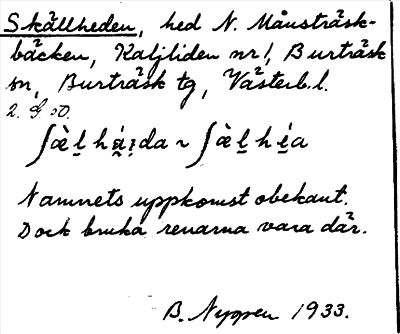 Skällheden, hed N. Månsträsk-
bäcken, Kaljliden nr 1, Burträsk
sn, Burträsk tg, Västerb. l.
2. S. 50.
ʃæ̀l̠ há̤i̤da ~ ʃæ̀l̠ hé̠a
Namnets uppkomst obekant.
Dock bruka renarna vara där.
B. Nyppen 1933.